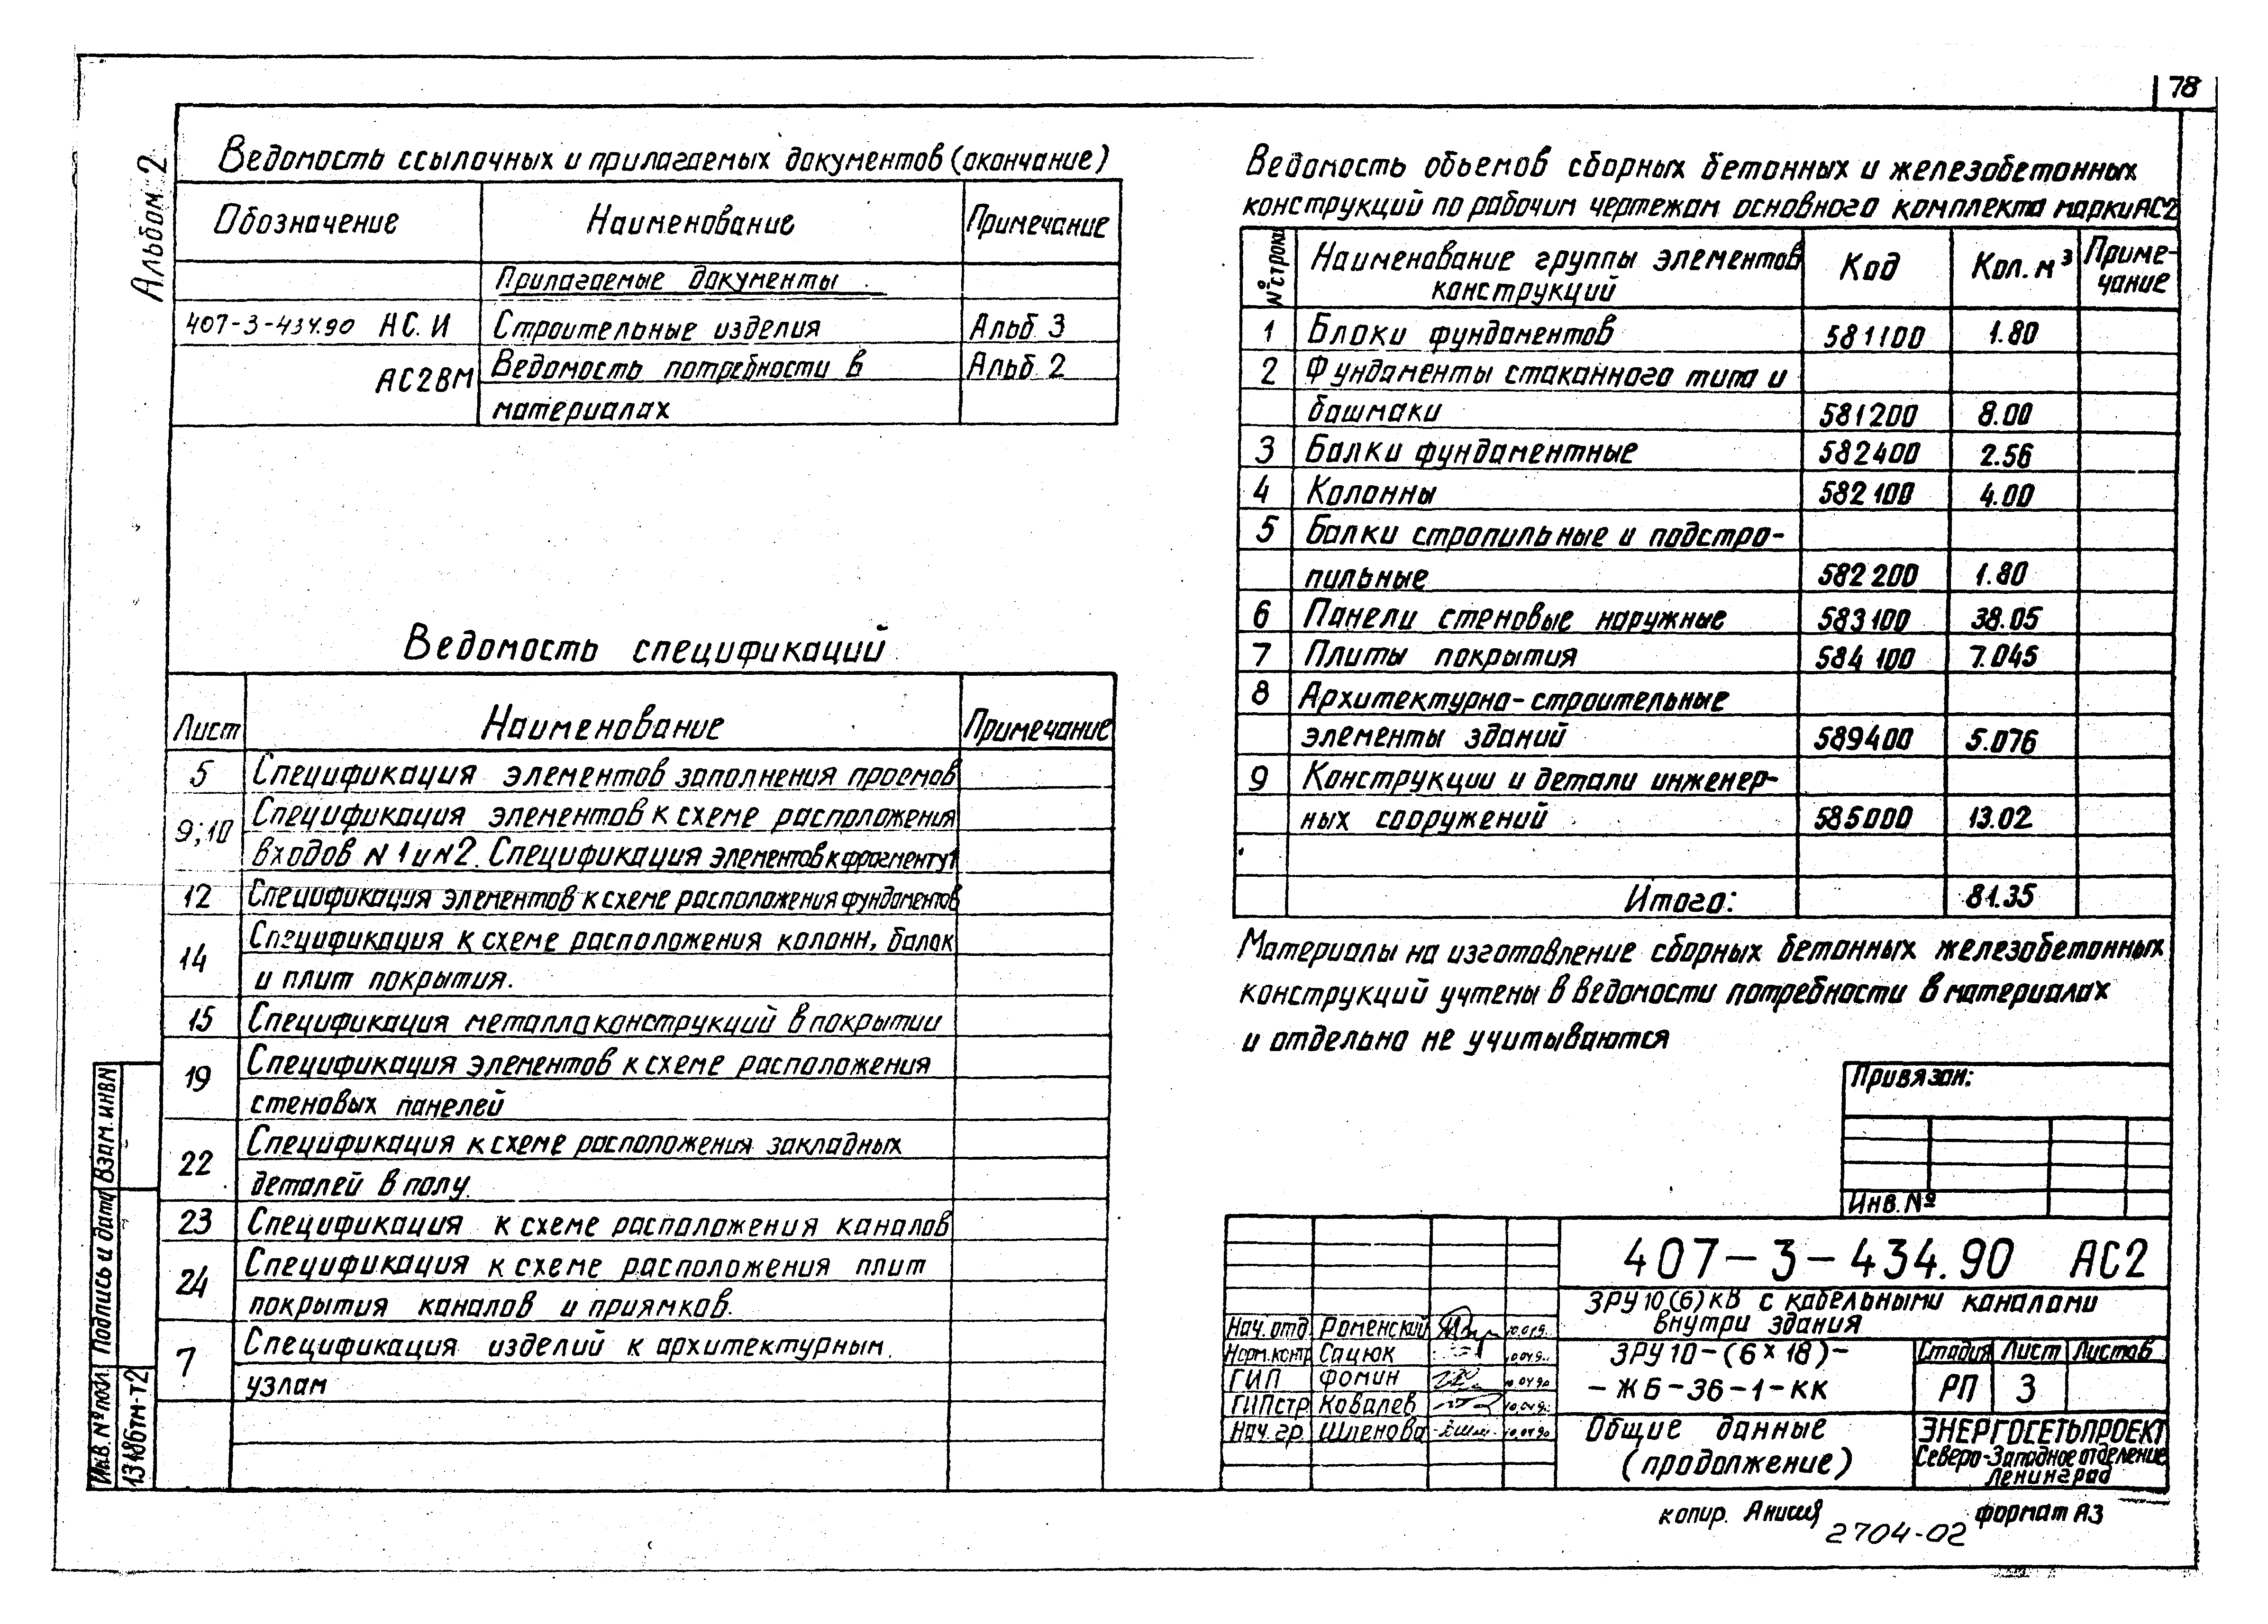 78
Альбом 2
Ведомость ссылочных и прилагаемых документов (окончание)
Обозначение Наименование Примечание
Прилагаемые документы
407-3-434.90 АС.И Строительные изделия Альб 3
АС2ВМ Ведомость потребности в Альб 2
материалах
Ведомость спецификаций
Лист Наименование Примечание
5 Спецификация элементов заполнения проемов
9;10 Спецификация элементов к схеме расположения
входов N 1 и N2. Спецификация элементов к фрагменту 1
12 Спецификация элементов к схеме расположения фундаментов
14 Спецификация к схеме расположения колонн, балок
и плит покрытия.
15 Спецификация металлоконструкций в покрытии
19 Спецификация элементов к схеме расположения
стеновых панелей
22 Спецификация к схеме расположения закладных
деталей в полу.
23 Спецификация к схеме расположения каналов
24 Спецификация к схеме расположения плит
покрытия каналов и приямков.
7 Спецификация изделий к архитектурным
узлам
Ведомость объемов сборных бетонных и железобетонных
конструкций по рабочим чертежам основного комплекта марки АС2
№ строки Наименование группы элементов конструкций Код Кол. м³ Приме-чание
1 Блоки фундаментов 581100 1.80
2 Фундаменты стаканного типа и
башмаки 581200 8.00
3 Балки фундаментные 582400 2.56
4 Колонны 582100 4.00
5 Балки стропильные и подстро-
пильные 582200 1.80
6 Панели стеновые наружные 583100 38.05
7 Плиты покрытия 584100 7.045
8 Архитектурно-строительные
элементы зданий 589400 5.076
9 Конструкции и детали инженер-
ных сооружений 585000 13.02
Итого: 81.35
Материалы на изготовление сборных бетонных железобетонных
конструкций учтены в ведомости потребности в материалах
и отдельно не учитываются
Привязан:
Инв. №
407-3-434.90 АС2
ЗРУ 10(6) кВ с кабельными каналами
внутри здания
Нач. отд Роменский
Норм.контр Сацюк
ГИП Фомин 10.04.90
ГИПстр Ковалев
Нач. гр. Шленова 10.04.90
ЗРУ 10-(6×18)-
-ЖБ-36-1-КК
Стадия Лист Листов
РП 3
Общие данные
(продолжение)
ЭНЕРГОСЕТЬПРОЕКТ
Северо-Западное отделение
Ленинград
Взам. инв N
Подпись и дата
Инв. № подл.
13186тм-т2
копир.
формат А3
2704-02